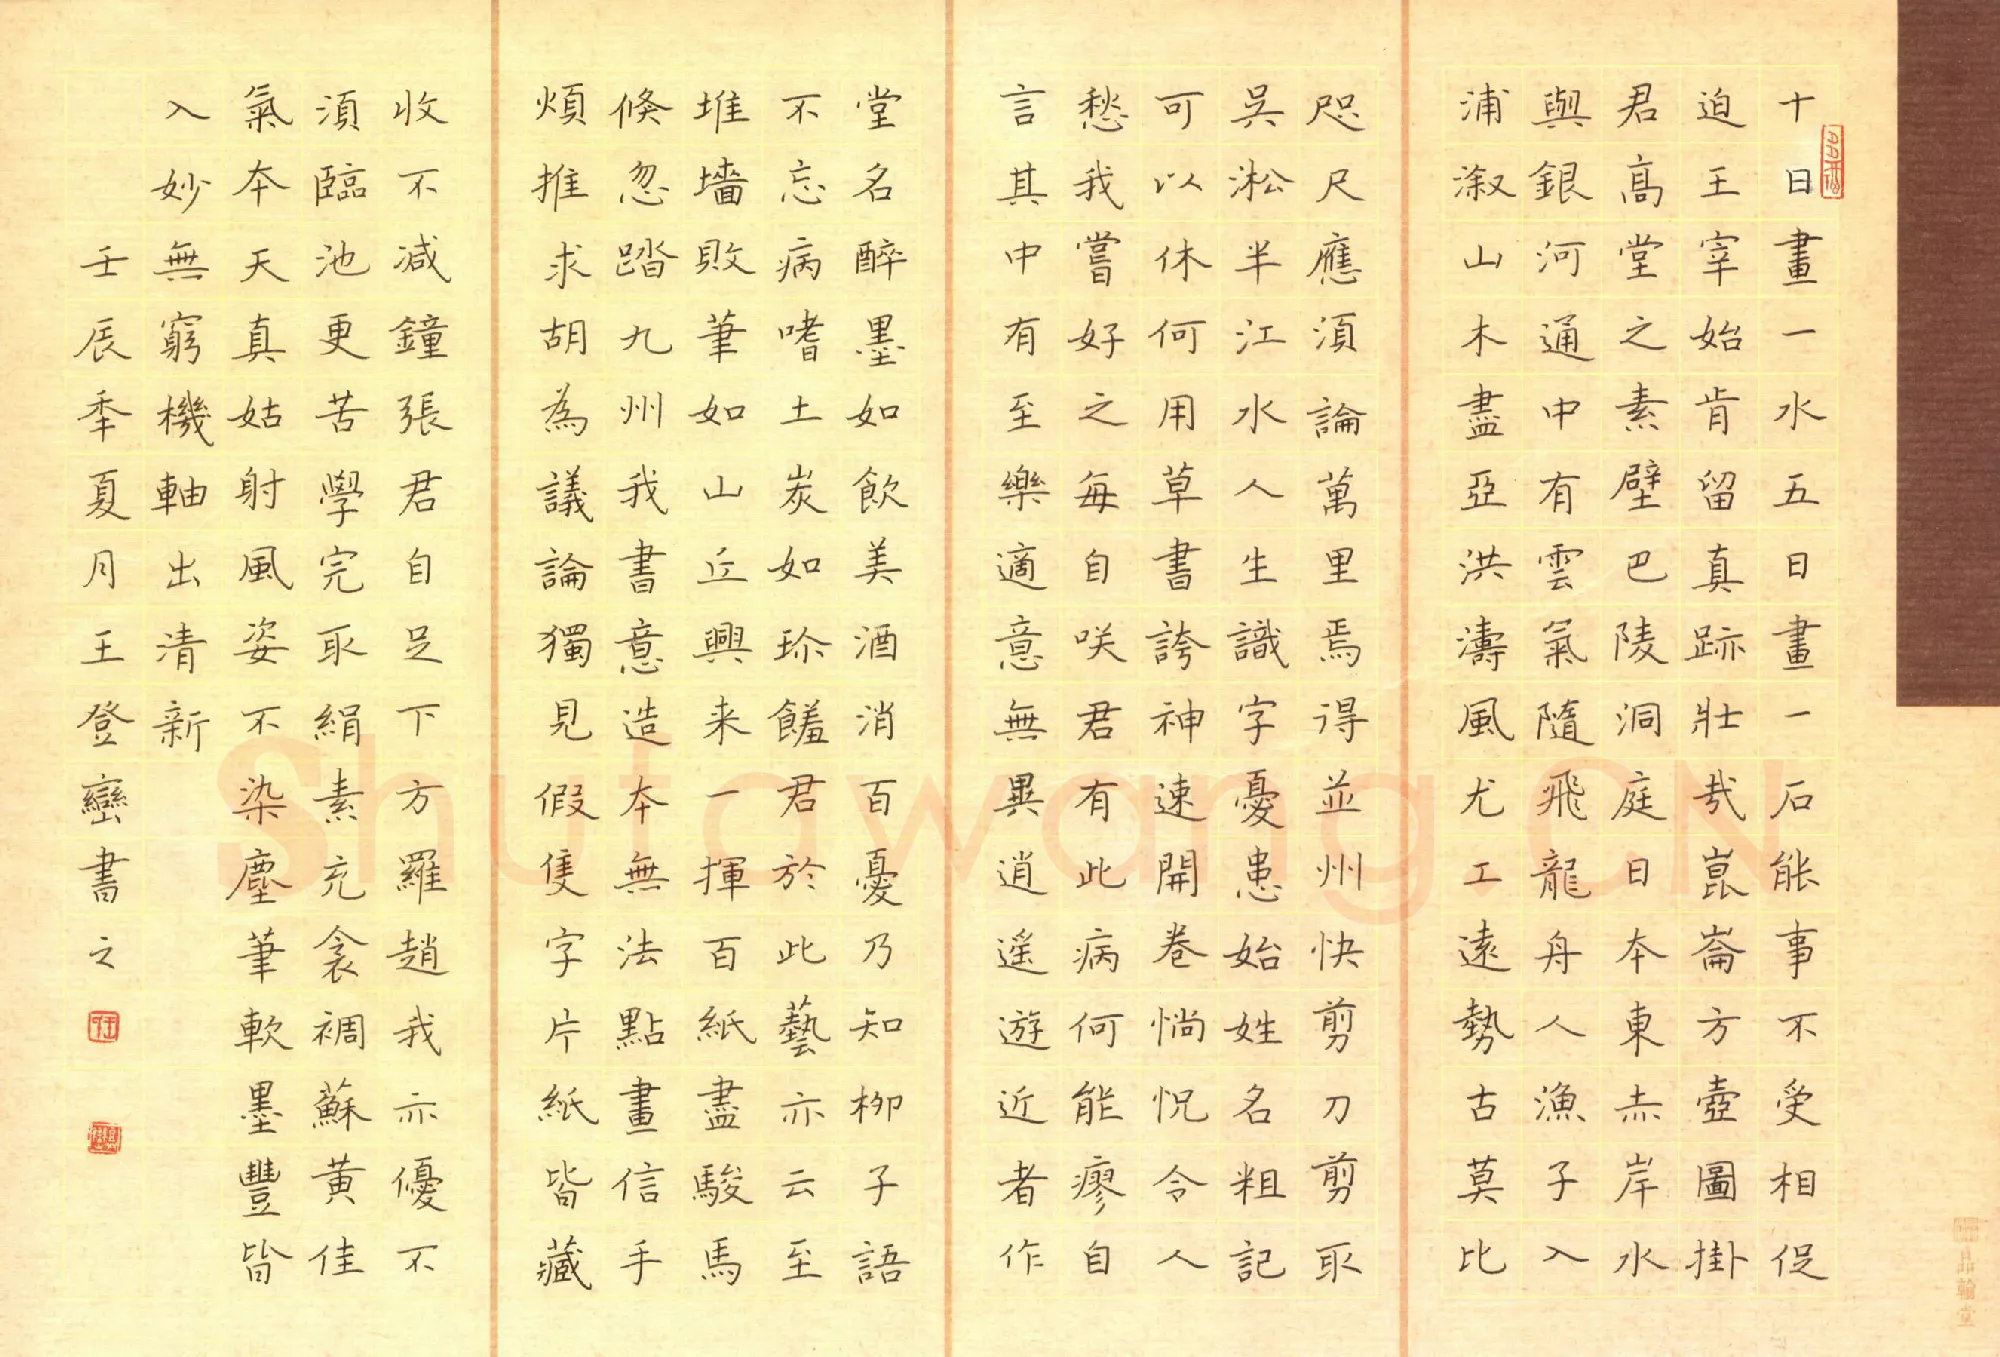 十日畫一水五日畫一石能事不受相促
迫王宰始肯留真跡壯哉崑崙方壺圖掛
君高堂之素壁巴陵洞庭日本東赤岸水
與銀河通中有雲氣隨飛龍舟人漁子入
浦溆山木盡亞洪濤風尤工遠勢古莫比
咫尺應須論萬里焉得並州快剪刀剪取
吳淞半江水人生識字憂患始姓名粗記
可以休何用草書誇神速開卷惝怳令人
愁我嘗好之每自咲君有此病何能瘳自
言其中有至樂適意無異逍遙遊近者作
堂名醉墨如飲美酒消百憂乃知柳子語
不忘病嗜土炭如珎饈君於此藝亦云至
堆墻敗筆如山丘興来一揮百紙盡駿馬
倏忽踏九州我書意造本無法點畫信手
煩推求胡為議論獨見假隻字片紙皆藏
收不减鐘張君自足下方羅趙我亦優不
須臨池更苦學完取絹素充衾裯蘇黃佳
氣本天真姑射風姿不染塵筆軟墨豐皆
入妙無窮機軸出清新
壬辰秊夏月王登巒書之
Shufawang.CN